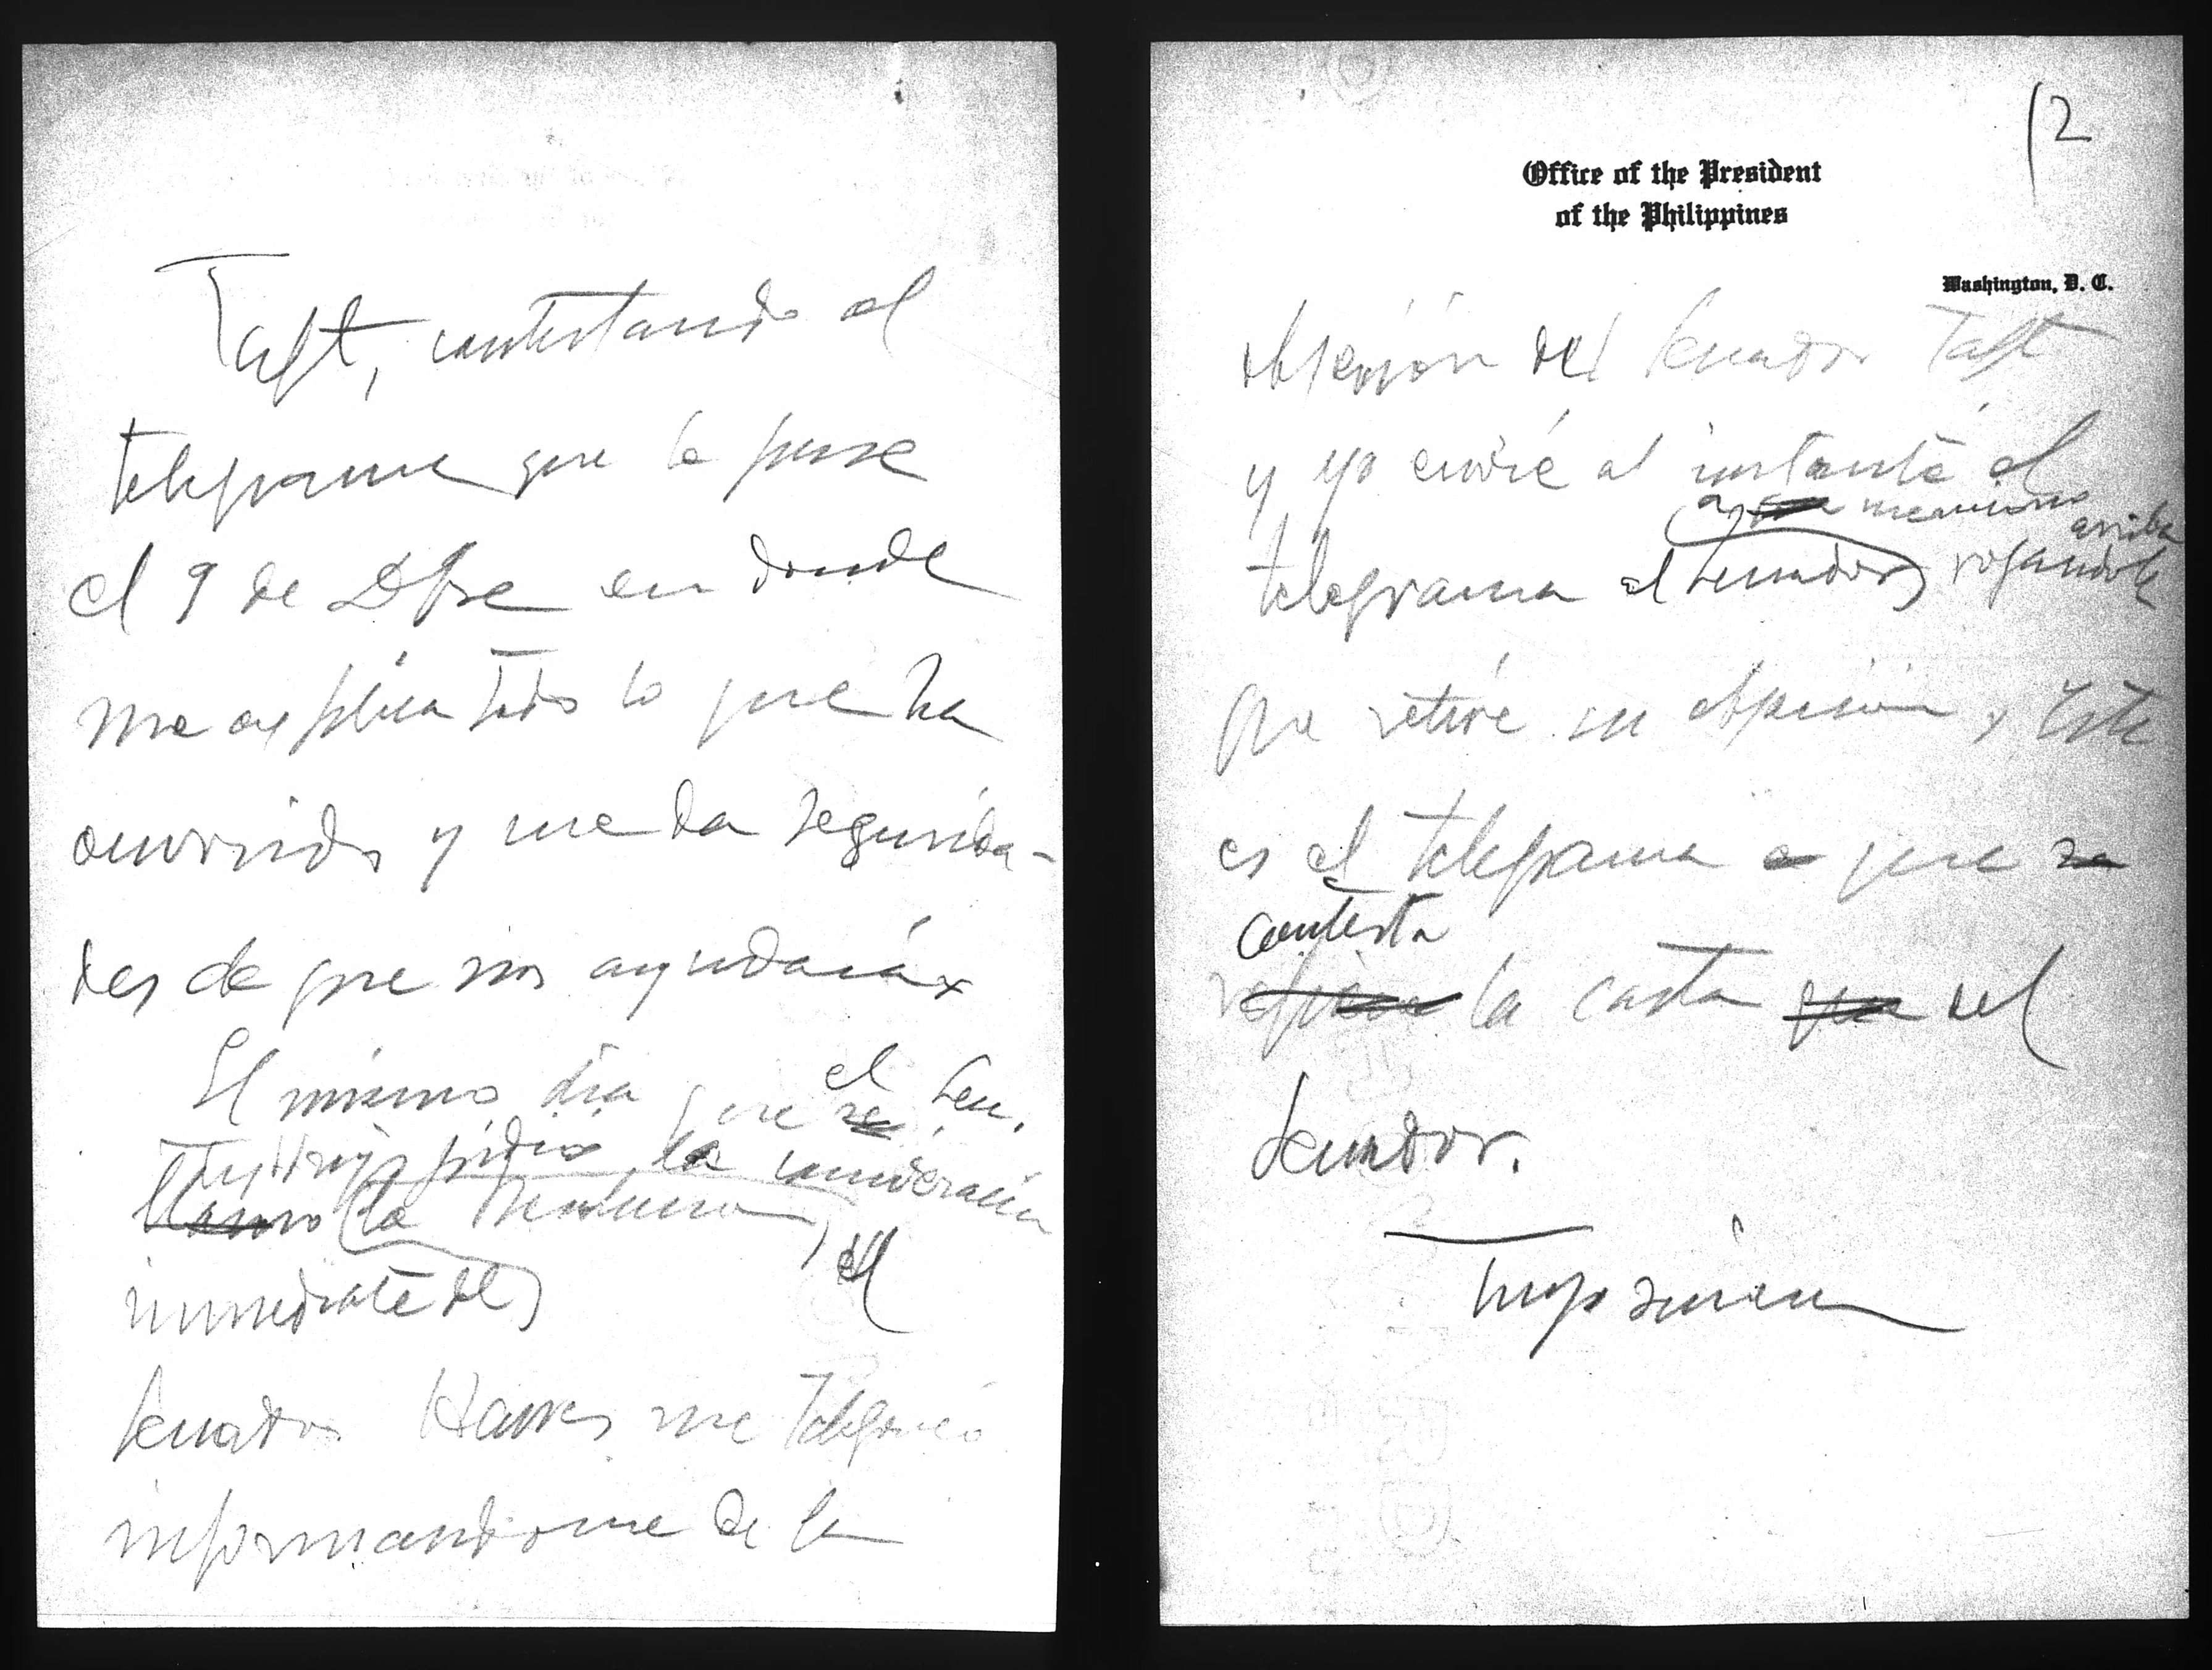 Taft, contestando al
telegrama que le puse
el 9 de Dbre en donde
me explica todo lo que ha
ocurrido y me da segurida-
des de que nos ayudará
El mismo dia que se el Sen.
Tydings pidio la consideración
llamo la
inmediata del, el
Senador Hawes me telefoneó
informandome de la
12
Office of the President
of the Philippines
Washington, D. C.
objeción del Senador Taft
y yo envié al instante el
a que menciono arriba
telegrama al Senador rogandole
que retire su objeción, Este
es el telegrama a que se
contesta
refiere la carta que del
Senador.